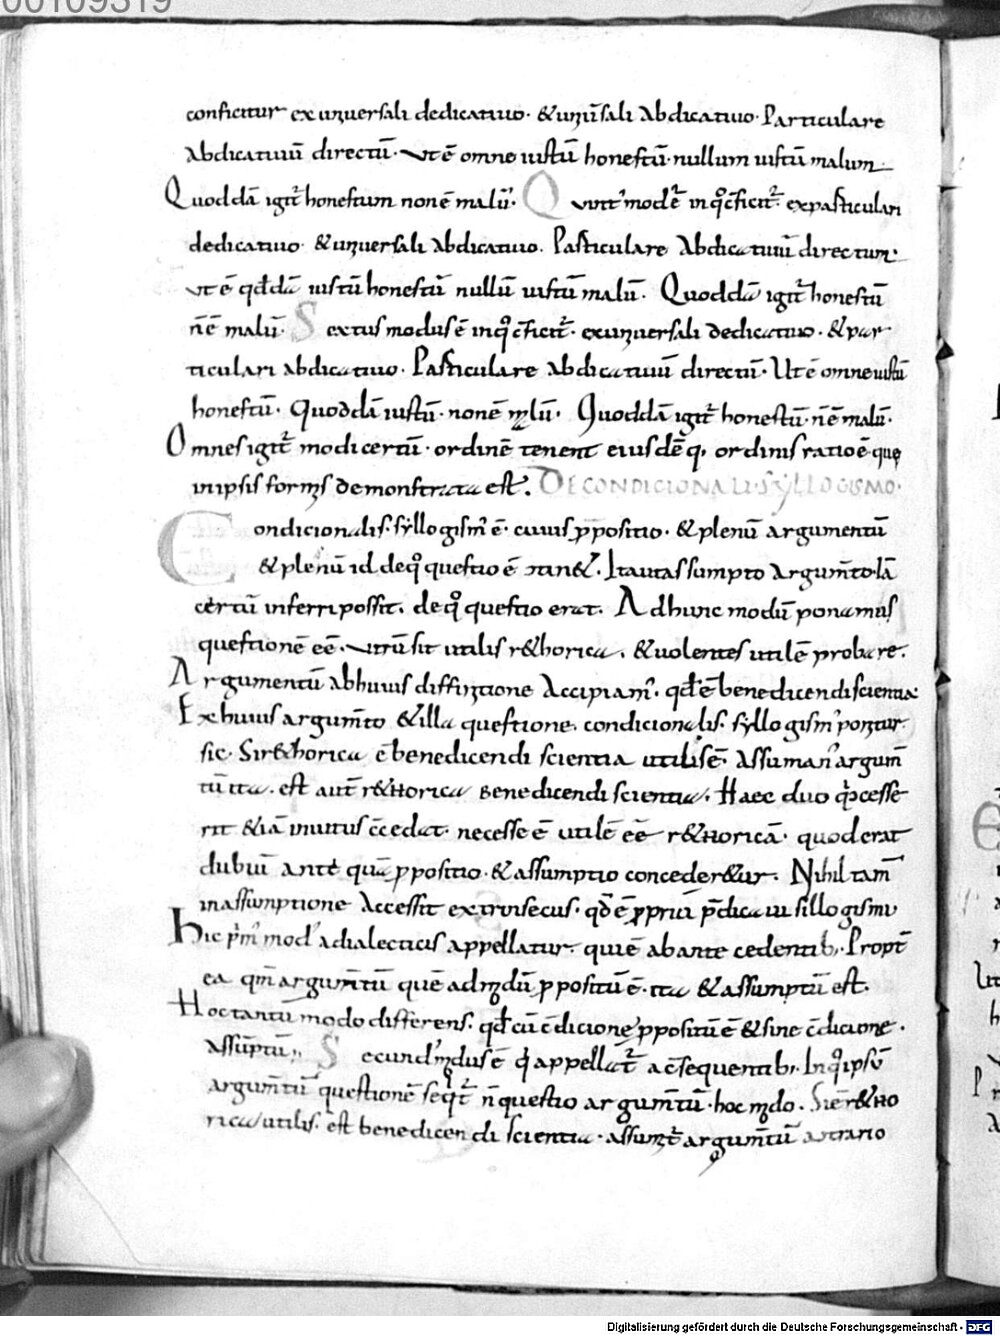 00109319
conficitur ex uniuersali dedicatiuo · & uniũsali Abdicatiuo · Particulare
Abdicatiuũ directũ · vt ẽ omne iustũ honestũ · nullum iustũ malum
Quoddã igit̃ honestum non ẽ malũ · Quint' mod' ẽ in q̊ c̃ficit̃ · ex particulari
dedicatiuo · & uniuersali Abdicatiuo · Particulare Abdicatiuũ directum ·
vt ẽ qđdã iustũ honestũ nullũ iustũ malũ · Quoddã igit̃ honestũ
ñ ẽ malũ · Sextus modus ẽ in q̊ c̃ficit̃ · ex uniuersali dedicatiuo · & par
ticulari Abdicatiuo · Particulare Abdicatiuũ directũ · Ut ẽ omne iustũ
honestũ · Quoddã iustũ · non ẽ malũ · Quoddã igit̃ honestũ · ñ ẽ malũ ·
Omnes igit̃ modi certũ · ordinẽ tenent eiusdẽ q, ordinis ratio ẽ quę
in ipsis formis demonstrata est. DE CONDICIONALI · SYLLOGISMO ·
Condicionalis · syllogism' ẽ · cuius p̱positio · & plenũ argumentũ
& plenũ id de q̊ questio ẽ tan& · Ita ut assumpto Argum̃to iã
certũ inferri possit. de q̊ questio erat. Ad hunc modũ ponamus
questionẽ eẽ · vtrũ sit utilis r&horica, & uolentes utilẽ probare.
Argumentũ Ab huius diffinitione Accipiam' · qđ ẽ benedicendi scientia
Ex huius argum̃to & illa questione, condicionalis · syllogism' ponitur
sic · Si r&horica ẽ benedicendi scientia utilis ẽ · Assuman' argum̃
tũ ita. est aut̃ r&Horica Benedicendi scientia. Haec duo q̃ cesse
rit &iã inuitus c̃cedat · necesse ẽ utilẽ eẽ r&Horicã · quod erat
dubiũ ante quã p̱positio · & assumptio conceder&ur. Nihil tam̃
in assumptione Accessit extrinsecus · qđ ẽ p̱priũ p̃dicatiui sillogismi
Hic p̃m' mod' a dialecticis appellatur · qui ẽ ab ante cedentib; · Propt̃
ea qm̃ argum̃tũ quẽ ad modũ p̱positũ ẽ · ita & assumptũ est.
Hoc tantũ modo differens · qđ cũ c̃dicione p̱positũ ẽ & sine c̃dicione.
Assũptũ · Secund' modus ẽ q̇ appellat̃ a c̃sequentib; · In q̊ ipsũ
argum̃tũ questionẽ seqt̃ ñ questio argum̃tũ · hoc modo. Si ẽ r&Ho
rica utilis · est benedicendi scientia · Assumit̃ argum̃tũ
Digitalisierung gefördert durch die Deutsche Forschungsgemeinschaft - DFG